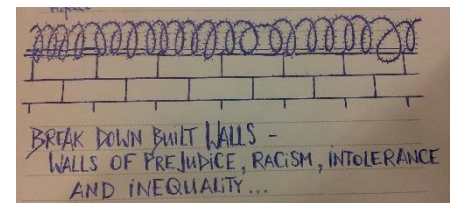 BREAK DOWN BUILT WALLS -
WALLS OF PREJUDICE, RACISM, INTOLERANCE
AND INEQUALITY...